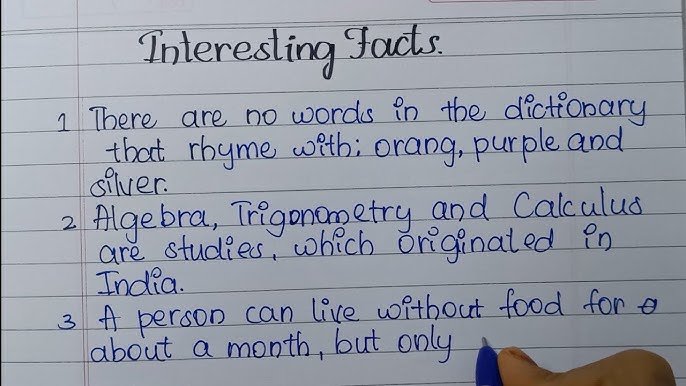 Interesting Facts.
1 There are no words in the dictionary
that rhyme with: orang, purple and
silver.
2 Algebra, Trigonometry and Calculus
are studies, which originated in
India.
3 A person can live without food for
about a month, but only